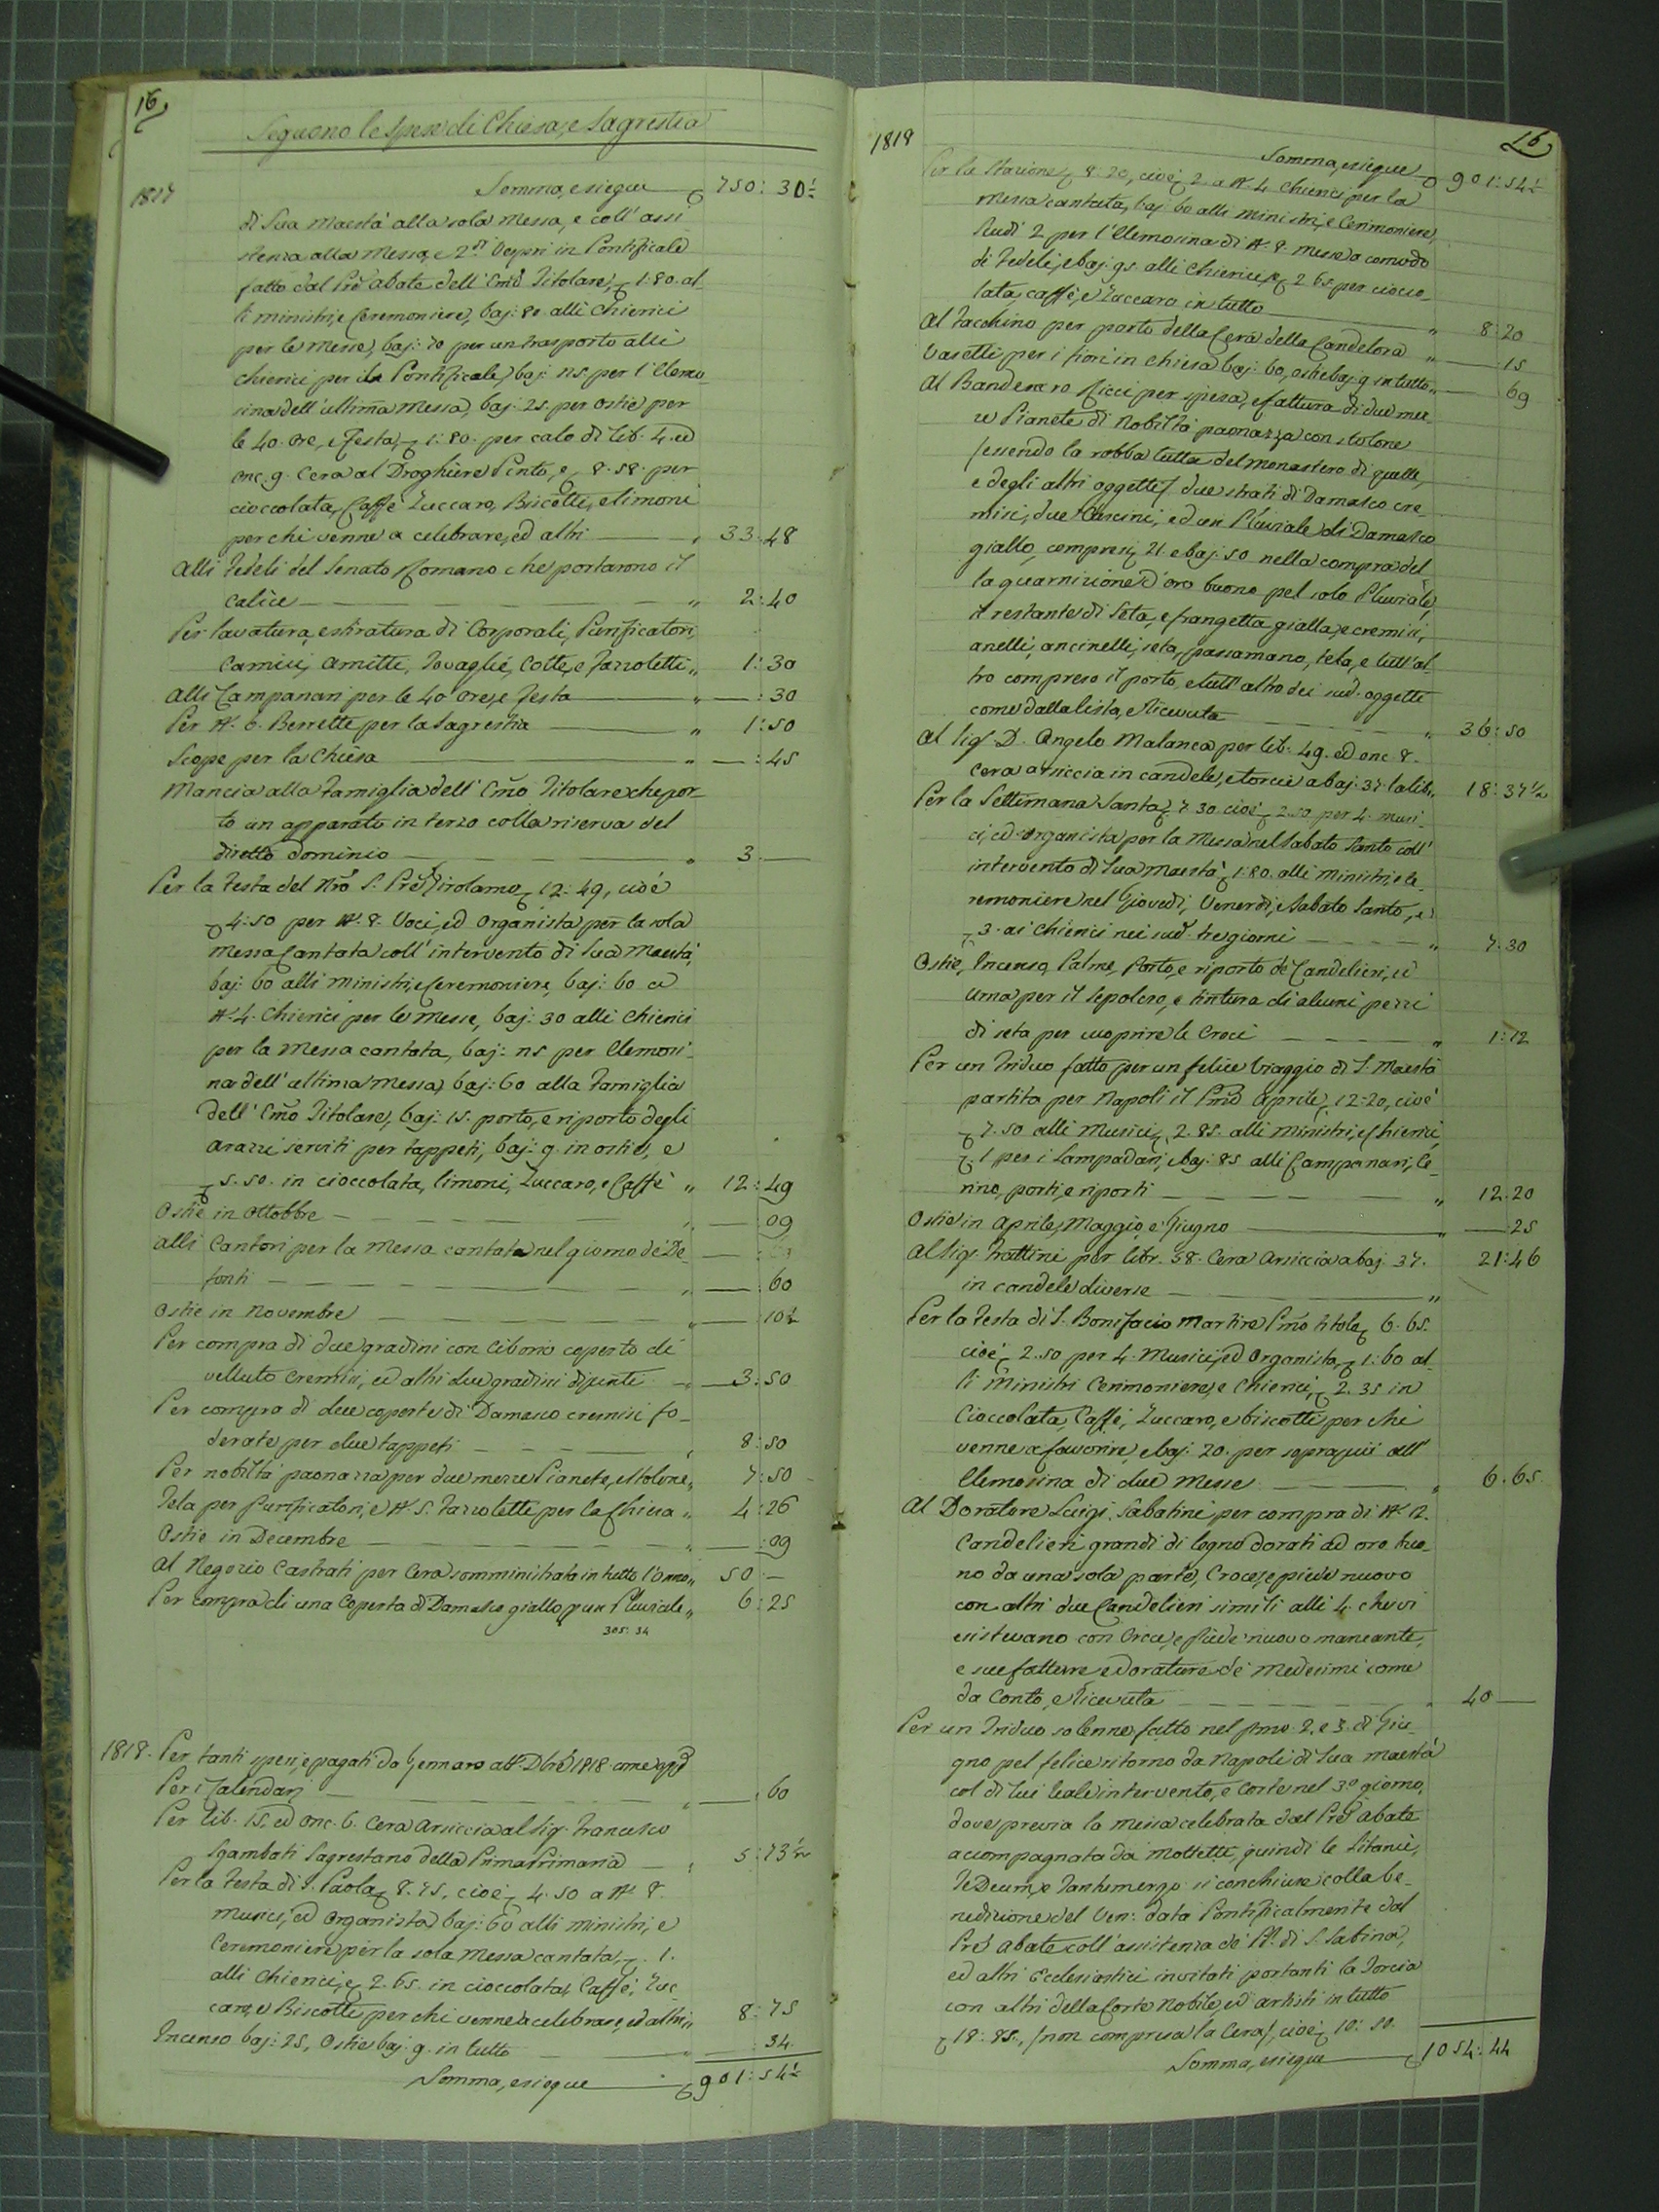 16
Seguono le Spese di Chiesa, e Sagrestia
1817
Somma, e siegue 750: 30½
di Sua Maestà alla sola Messa, e coll' assi
stenza alla Messa, e 2di Vespri in Pontificale
fatto dal Pre Abate dell' Emo Titolare, 1:80. al
li ministri, e Ceremoniere, baj: 80 alli Chierici
per le Messe, baj: 70 per un trasporto alli
chierici per il Pontificale, baj: 15. per l' Elemo
sina dell' ultima Messa, baj: 25. per Ostie per
le 40. Ore, e Festa, 1:80. per calo di Lib. 4. ed
onc. 9. Cera al Droghiere Pinto, e 8:58. per
cioccolata, Caffè Zuccaro, Biscotti, e limoni
per chi venne a celebrare, ed altri — „ 33:48
Alli Fedeli del Senato Romano che portarono il
Calice — „ 2:40
Per lavatura, e stiratura di Corporali, Purificatori,
Camici, Amitti, Tovaglie, Cotte, e Fazzoletti „ 1:30
Alli Campanari per le 40 Ore, e Festa — „ —:30
Per N. 6. Berrette per la Sagrestia — „ 1:50
Scope per la Chiesa — „ —:45
Mancia alla Famiglia dell' Emo Titolare che por-
to un apparato in terzo colla riserva del
diretto dominio — „ 3.—
Per la Festa del Nro S. Pre Girolamo 12:49, cioè
4:50 per N. 8. Voci, ed Organista per la sola
Messa Cantata coll' intervento di Sua Maestà,
baj: 60 alli Ministri, e Ceremoniere, baj: 60 a
N. 4. Chierici per le Messe, baj: 30 alli Chierici
per la Messa cantata, baj: 15 per Elemosi-
na dell' ultima Messa, baj: 60 alla Famiglia
dell' Emo Titolare, baj: 15. porto, e riporto degli
arazzi serviti per tappeti, baj: 9. in ostie, e
5.50. in cioccolata, limoni, Zuccaro, e Caffè „ 12:49
Ostie in Ottobre — „ —:09
Alli Cantori per la Messa cantata nel giorno de' De
fonti — „ —:60
Ostie in Novembre — „ —:10½
Per compra di due gradini con Ciborio coperto di
velluto cremisi, ed altri due gradini dipinti — 3:50
Per compra di due coperte di Damasco cremisi fo-
derate per due tappeti — „ 8:50
Per nobiltà paonazza per due mezze Pianete, e Stolone „ 7:50
Tela per Purificatori, e N. 5. Fazzoletti per la Chiesa „ 4:26
Ostie in Decembre — „ —:09
Al Negozio Castrati per Cera somministrata in tutto l'anno „ 50.—
Per compra di una Coperta di Damasco giallo p un Pluviale „ 6:25
305:34
1818. Per tanti spesi, e pagati da Gennaro all' Dbre 1818 come app.
Per i Calendari — „ —:60
Per Lib. 15. ed Onc. 6. Cera Arsiccia al Sig. Francesco
Sgambati Sagrestano della Prima Primaria — „ 5:73½
Per la Festa di S. Paola 8.75, cioè 4.50 a N. 8.
Musici, ed Organista, baj: 60 alli Ministri, e
Ceremoniere per la sola Messa cantata, 1.
alli Chierici, e 2.65. in cioccolata, Caffè, Zuc
caro, e Biscotti per chi venne a celebrare, ed altri „ 8:75
Incenso baj: 25, Ostie baj. 9. in tutto — „ —:34.
Somma, e siegue 901:54½
1818
16
Somma, e siegue 901:54½
Per la Stazione 8:20, cioè 2. a N. 4. Chierici per la
Messa cantata, baj. 60 alli Ministri, e Cerimoniere,
Scudi 2 per l' Elemosina di N. 8. Messe a comodo
di Fedeli, e baj: 95. alli Chierici, e 2.65. per ciocco
lata, caffè, e Zuccaro in tutto — „ 8:20
Al Facchino per porto della Cera della Candelora „ —:15
Vasetti per i fiori in Chiesa baj: 60, ostie baj: 9 in tutto „ —:69
Al Banderaro Ricci per spesa, e fattura di due mez-
ze Pianete di Nobiltà paonazza con stolone
(essendo la robba tutta del monastero di quelle,
e degli altri oggetti) due strati di Damasco cre-
misi, due Cuscini, ed un Pluviale di Damasco
giallo, compresi 21. e baj: 50 nella compra del
la guarnizione d' oro buono pel solo Pluviale,
il restante di Seta, e frangetta gialla, e cremisi,
anelli, ancinelli, seta, passamano, tela, e tutt' al
tro compreso il porto, e tutt' altro dei sud. oggetti
come dalla lista, e ricevuta — „ 36:50
Al Sig. D. Angelo Malanca per Lib. 49. ed onc. 8.
Cera arsiccia in candele, e torcie a baj: 37 la lib. „ 18:37½
Per la Settimana Santa 7.30 cioè 2.50 per 4. musi-
ci, ed organista per la Messa nel Sabato Santo coll'
intervento di Sua Maestà, 1:80. alli Ministri, e Ce-
remoniere nel Giovedì, Venerdì, e Sabato Santo, e
3. ai Chierici nei sud. tre giorni — „ 7.30
Ostie, Incenso, Palme, porto, e riporto de' Candelieri, ed
Urna per il Sepolcro, e tintura di alcuni pezzi
di seta per cuoprire le Croci — „ 1:12
Per un Triduo fatto per un felice viaggio di S. Maestà
partita per Napoli il Pmo Aprile, 12:20, cioè
7.50 alli Musici, 2.85. alli Ministri, e Chierici,
1 per i Lampadari, e baj: 85 alli Campanari, Ce
rino, porti, e riporti — „ 12.20
Ostie in Aprile, Maggio, e Giugno — „ —:25
Al Sig. Frattini per libr. 58. Cera Arsiccia a baj: 37. 21:46
in candele diverse — „
Per la Festa di S. Bonifacio Martire Pmo titolo, 6.65.
cioè, 2.50 per 4. Musici, ed Organista, 1:60 al-
li Ministri Cerimoniere, e Chierici, 2.35 in
Cioccolata, Caffè, Zuccaro, e biscotti per chi
venne a favorire, e baj: 20. per soprappiù all'
Elemosina di due Messe — „ 6.65.
Al Doratore Luigi Sabatini per compra di N. 12.
Candelieri grandi di legno dorati ad oro buo-
no da una sola parte, Croce, e piede nuovo
con altri due Candelieri simili alli 4. che vi
esistevano con Croce, e Piede nuovo mancante,
e sue fatture e dorature de' medesimi come
da Conto, e Ricevuta — „ 40 —
Per un Triduo solenne fatto nel pmo. 2. e 3. di Giu-
gno pel felice ritorno da Napoli di Sua Maestà
col di Lui Reale intervento, e Corte nel 3º giorno,
dove previa la Messa celebrata dal Pre Abate
accompagnata da mottetti, quindi le Litanie,
Te Deum, e Tantumergo si conchiuse colla be-
nedizione del Ven: data Pontificalmente dal
Pre Abate coll' assistenza de' PP. di S. Sabina,
ed altri Ecclesiastici invitati portanti la Torcia
con altri della Corte Nobile, ed artisti in tutto
18:85., (non compresa la Cera), cioè 10:50.
Somma, e siegue 1054:44